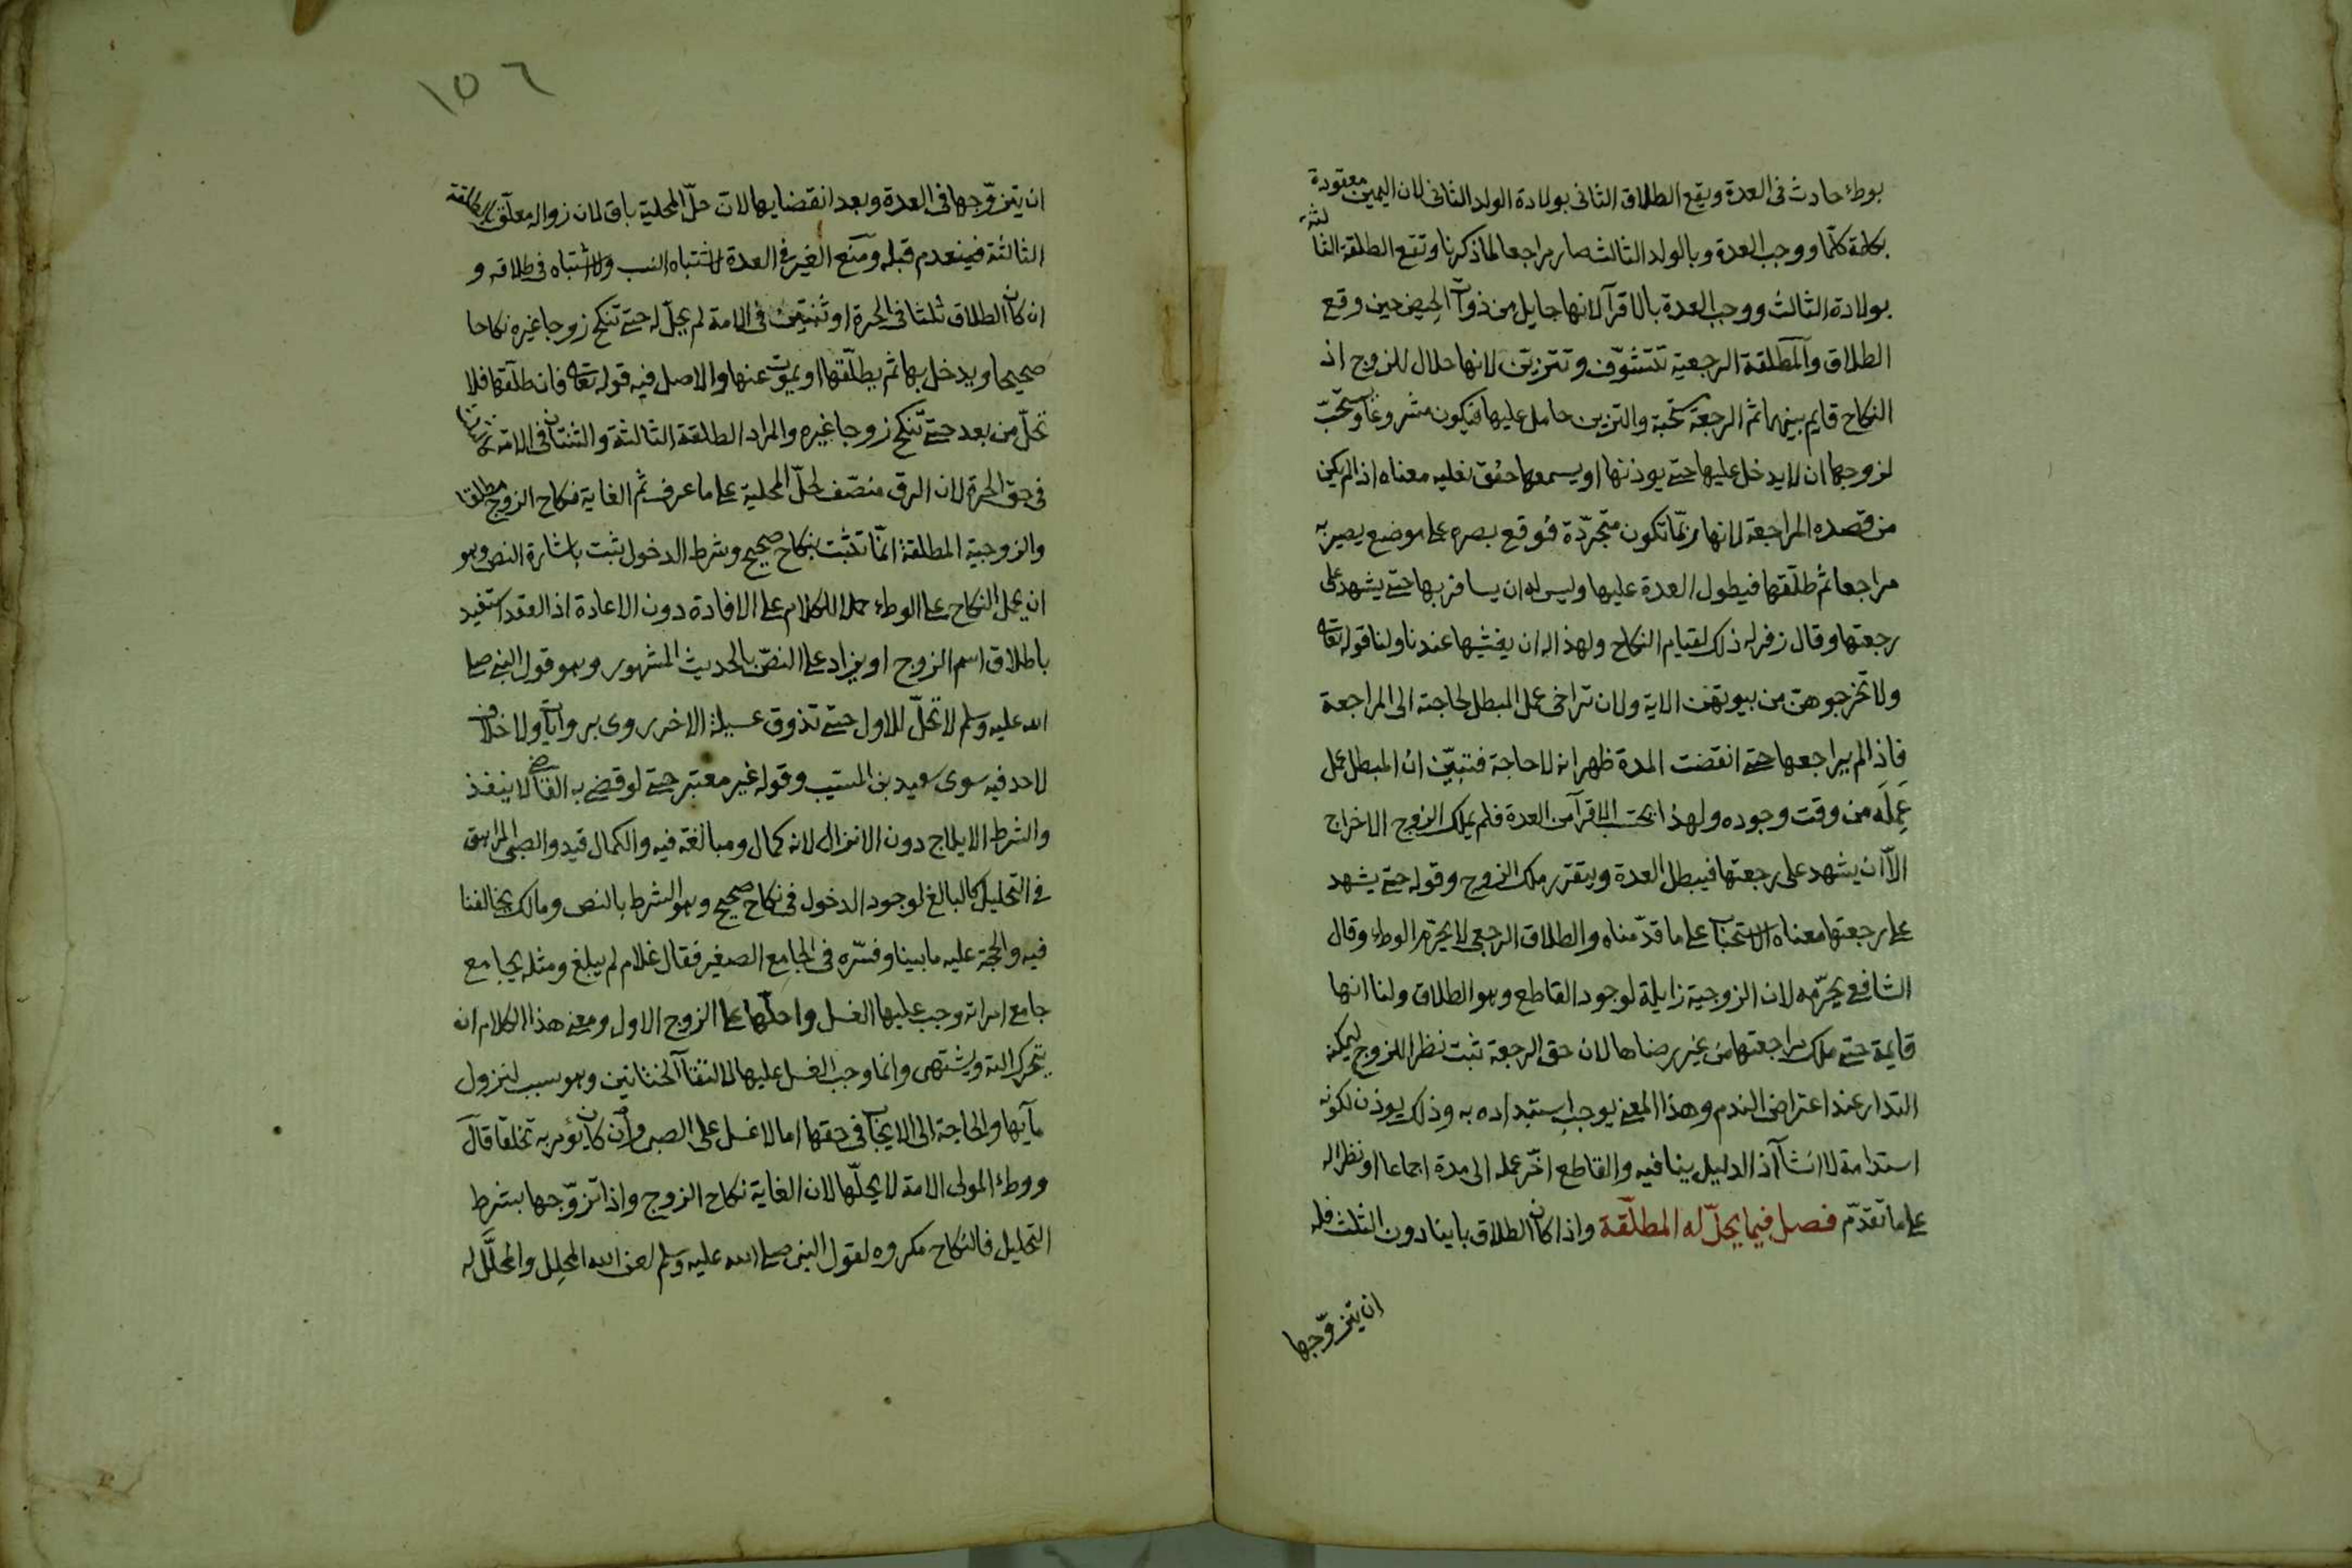 بوطء حادث فى العدة ويقع الطلاق الثانى بولادة الولد الثانى لان اليمين معقودة
بكلمة كلّما ووجب العدة وبالولد الثالث صار مراجعا لما ذكرنا وتقع الطلقة الثالثة
بولادة الثالث ووجب العدة بالاقرآ لانها حايل من ذوات الحيض حين وقع
الطلاق والمطلقة الرجعية تتشوّف وتتزيّن لانها حلال للزوج اذ
النكاح قايم بينهما ثم الرجعة مستحبة والتزيين حامل عليها فيكون مشروعا ويستحبّ
لزوجها ان لا يدخل عليها حتى يوذنها او يسمعها خفق نعليه معناه اذا لم يكن
من قصده المراجعة لانها ربّما تكون متجرّدة فوقع بصره على موضع يصير به
مراجعا ثم طلّقها فيطول العدة عليها وليس له ان يسافر بها حتى يشهد على
رجعتها وقال زفر له ذلك لقيام النكاح ولهذا له ان يغشيها عندنا ولنا قوله تعالى
ولا تخرجوهنّ من بيوتهن الاية ولان تراخى عمل المبطل لحاجته الى المراجعة
فاذا لم يراجعها حتى انقضت المدة ظهر انه لا حاجة فتبيّن انّ المبطل عمل
عمله من وقت وجوده ولهذا يحتسب الاقرآ من العدة فلم يملك الزوج الاخراج
الّا ان يشهد على رجعتها فيبطل العدة ويتقرر ملك الزوج وقوله حتى يشهد
على رجعتها معناه الاستحباب على ما قدّمناه والطلاق الرجعى لا يحرّم الوطء وقال
الشافعى يحرّمه لان الزوجية زايلة لوجود القاطع وهو الطلاق ولنا انها
قايمة حتى ملك مراجعتها من غير رضاها لان حق الرجعة ثبت نظرا للزوج ليمكنه
التدارك عند اعتراض الندم وهذا المعنى يوجب استبداده به وذلك يوذن لكونه
استدامة لا انشآ اذ الدليل ينافيه والقاطع اخّر عمله الى مدة اجماعا او نظرا له
على ما تقدّم فصل فيما يحلّ له المطلّقة واذا كان الطلاق باينا دون الثلث فله
ان يتزوّجها
١٥٦
ان يتزوّجها فى العدة وبعد انقضايها لانّ حلّ المحلية باق لان زواله معلّق بالطلقة
الثالثة فينعدم قبله ومنع الغير فى العدة لاشتباه النسب ولا اشتباه فى طلاقه و
ان كان الطلاق ثلثا فى الحرة او ثنتين فى الامة لم يحلّ له حتى تنكح زوجا غيره نكاحا
صحيحا ويدخل بها ثم يطلّقها او يموت عنها والاصل فيه قوله تعالى فان طلّقها فلا
تحلّ من بعد حتى تنكح زوجا غيره والمراد الطلقة الثالثة والثنتان فى الامة كالثلث
فى حق الحرة لان الرق منصّف لحلّ المحلية على ما عرف ثم الغاية نكاح الزوج مطلقا
والزوجية المطلقة انمّا تثبت بنكاح صحيح وشرط الدخول يثبت باشارة النص وهو
ان يحمل النكاح على الوطء حملا للكلام على الافادة دون الاعادة اذ العقد استفيد
باطلاق اسم الزوج او يزاد على النصّ بالحديث المشهور وهو قول النبى صلى
الله عليه وسلم لا تحلّ للاول حتى تذوق عسيلة الاخر روى بروايات ولا خلاف
لاحد فيه سوى سعيد بن المسيّب وقوله غير معتبر حتى لو قضى به القاضى لا ينفذ
والشرط الايلاج دون الانزال لانه كمال ومبالغة فيه والكمال قيد والصبى المراهق
فى التحليل كالبالغ لوجود الدخول فى نكاح صحيح وهو الشرط بالنص ومالك يخالفنا
فيه والحجة عليه ما بيناه وفسّره فى الجامع الصغير فقال غلام لم يبلغ ومثله يجامع
جامع امراته وجب عليها الغسل واحلّها على الزوج الاول ومعنى هذا الكلام ان
يتحرك الته ويشتهى وانما وجب الغسل عليها لالتقآ الختانين وهو سبب لنزول
مآيها والحاجة الى الايجاب فى حقها اما لا غسل على الصبى وان كان يؤمر به تخلقا قال
ووطء المولى الامة لا يحلّها لان الغاية نكاح الزوج واذا تزوّجها بشرط
التحليل فالنكاح مكروه لقول النبى صلى الله عليه وسلم لعن الله المحلِل والمحلَّل له